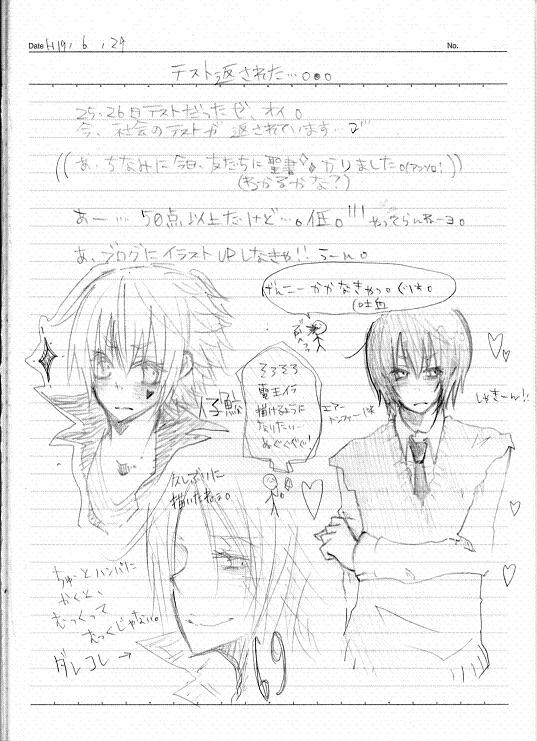 Date H19. 6 . 29
No.
テスト返された…。。。
25、26日テストだったぜ、オイ。
今、社会のテストが返されています…
((あ、ちなみに今日、友だちに聖書かりました。(アンソロ!))
(わかるかな?)
あー…50点以上だけど…。低。!!!やってらんねーヨ。
あ、ブログにイラストUPしなきゃ!!うーん。
げんこーかかなきゃっ。ぐはぁ。
(吐血
仔鮫
そろそろ
魔王イラ
描けるように
なりたい…
ぬぐぐぐ!
エアー
トンファーじゃ
しゃきーん!!
久しぶりに
描いたねぇ。
ちゅーとハンパに
かくと、
むっくって
むっくじゃない。
ダレコレ→
69